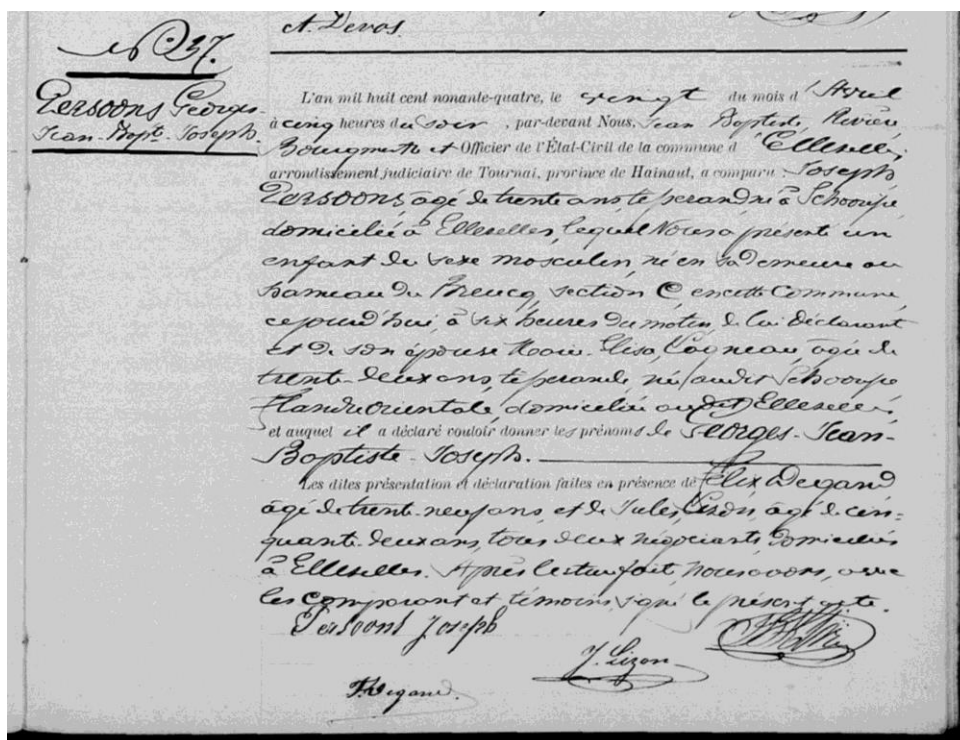 A. Devos.
N° 37.
Persoons Georges-
Jean-Bapt. Joseph.
L'an mil huit cent nonante-quatre, le vingt du mois d'Avril
à cinq heures du soir, par-devant Nous, Jean Baptiste
Bourgmestre et Officier de l'État-Civil de la commune d'Ellezelles
arrondissement judiciaire de Tournai, province de Hainaut, a comparu Joseph
Persoons, âgé de trente ans, né à Schoorisse,
domicilié à Ellezelles, lequel Nous a présenté un
enfant du sexe masculin, né en sa demeure au
hameau du Breucq, section C, en cette Commune,
cejourd'hui, à six heures du matin, de lui déclarant
et de son épouse Marie-Elisa, Cogneau, âgée de
trente-deux ans, née audit Schoorisse
Flandre orientale, domiciliée audit Ellezelles,
et auquel il a déclaré vouloir donner les prénoms de Georges-Jean-
Baptiste-Joseph.
Les dites présentation et déclaration faites en présence de Félix Degand
âgé de trente-neuf ans, et de Jules, Lizon, âgé de cin-
quante-deux ans, tous deux négociants, domiciliés
à Ellezelles. Après lecture faite, Nous avons, avec
les comparant et témoins, signé le présent acte.
Persoons Joseph
J. Lizon
F. Degand.